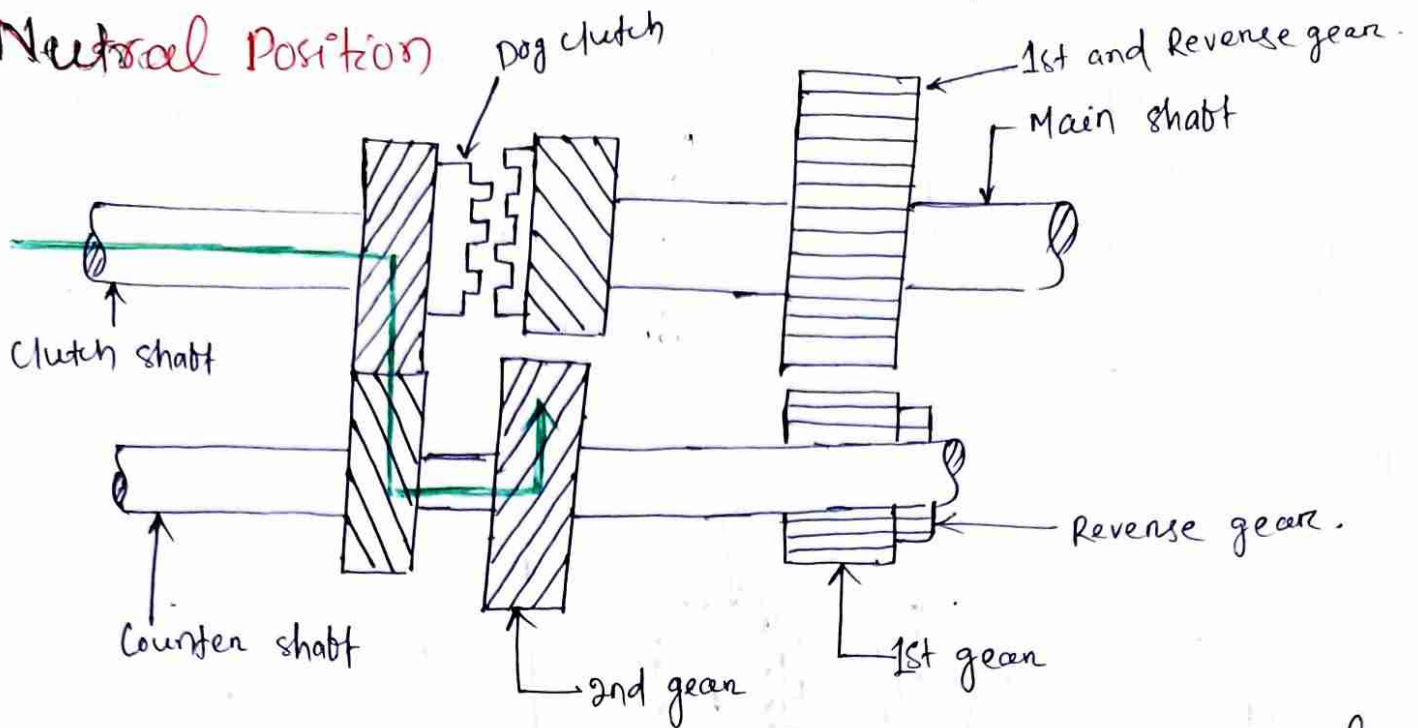 Neutral Position
Dog clutch
1st and Reverse gear.
Main shaft
Clutch shaft
Reverse gear.
Counter shaft
1st gear
2nd gear